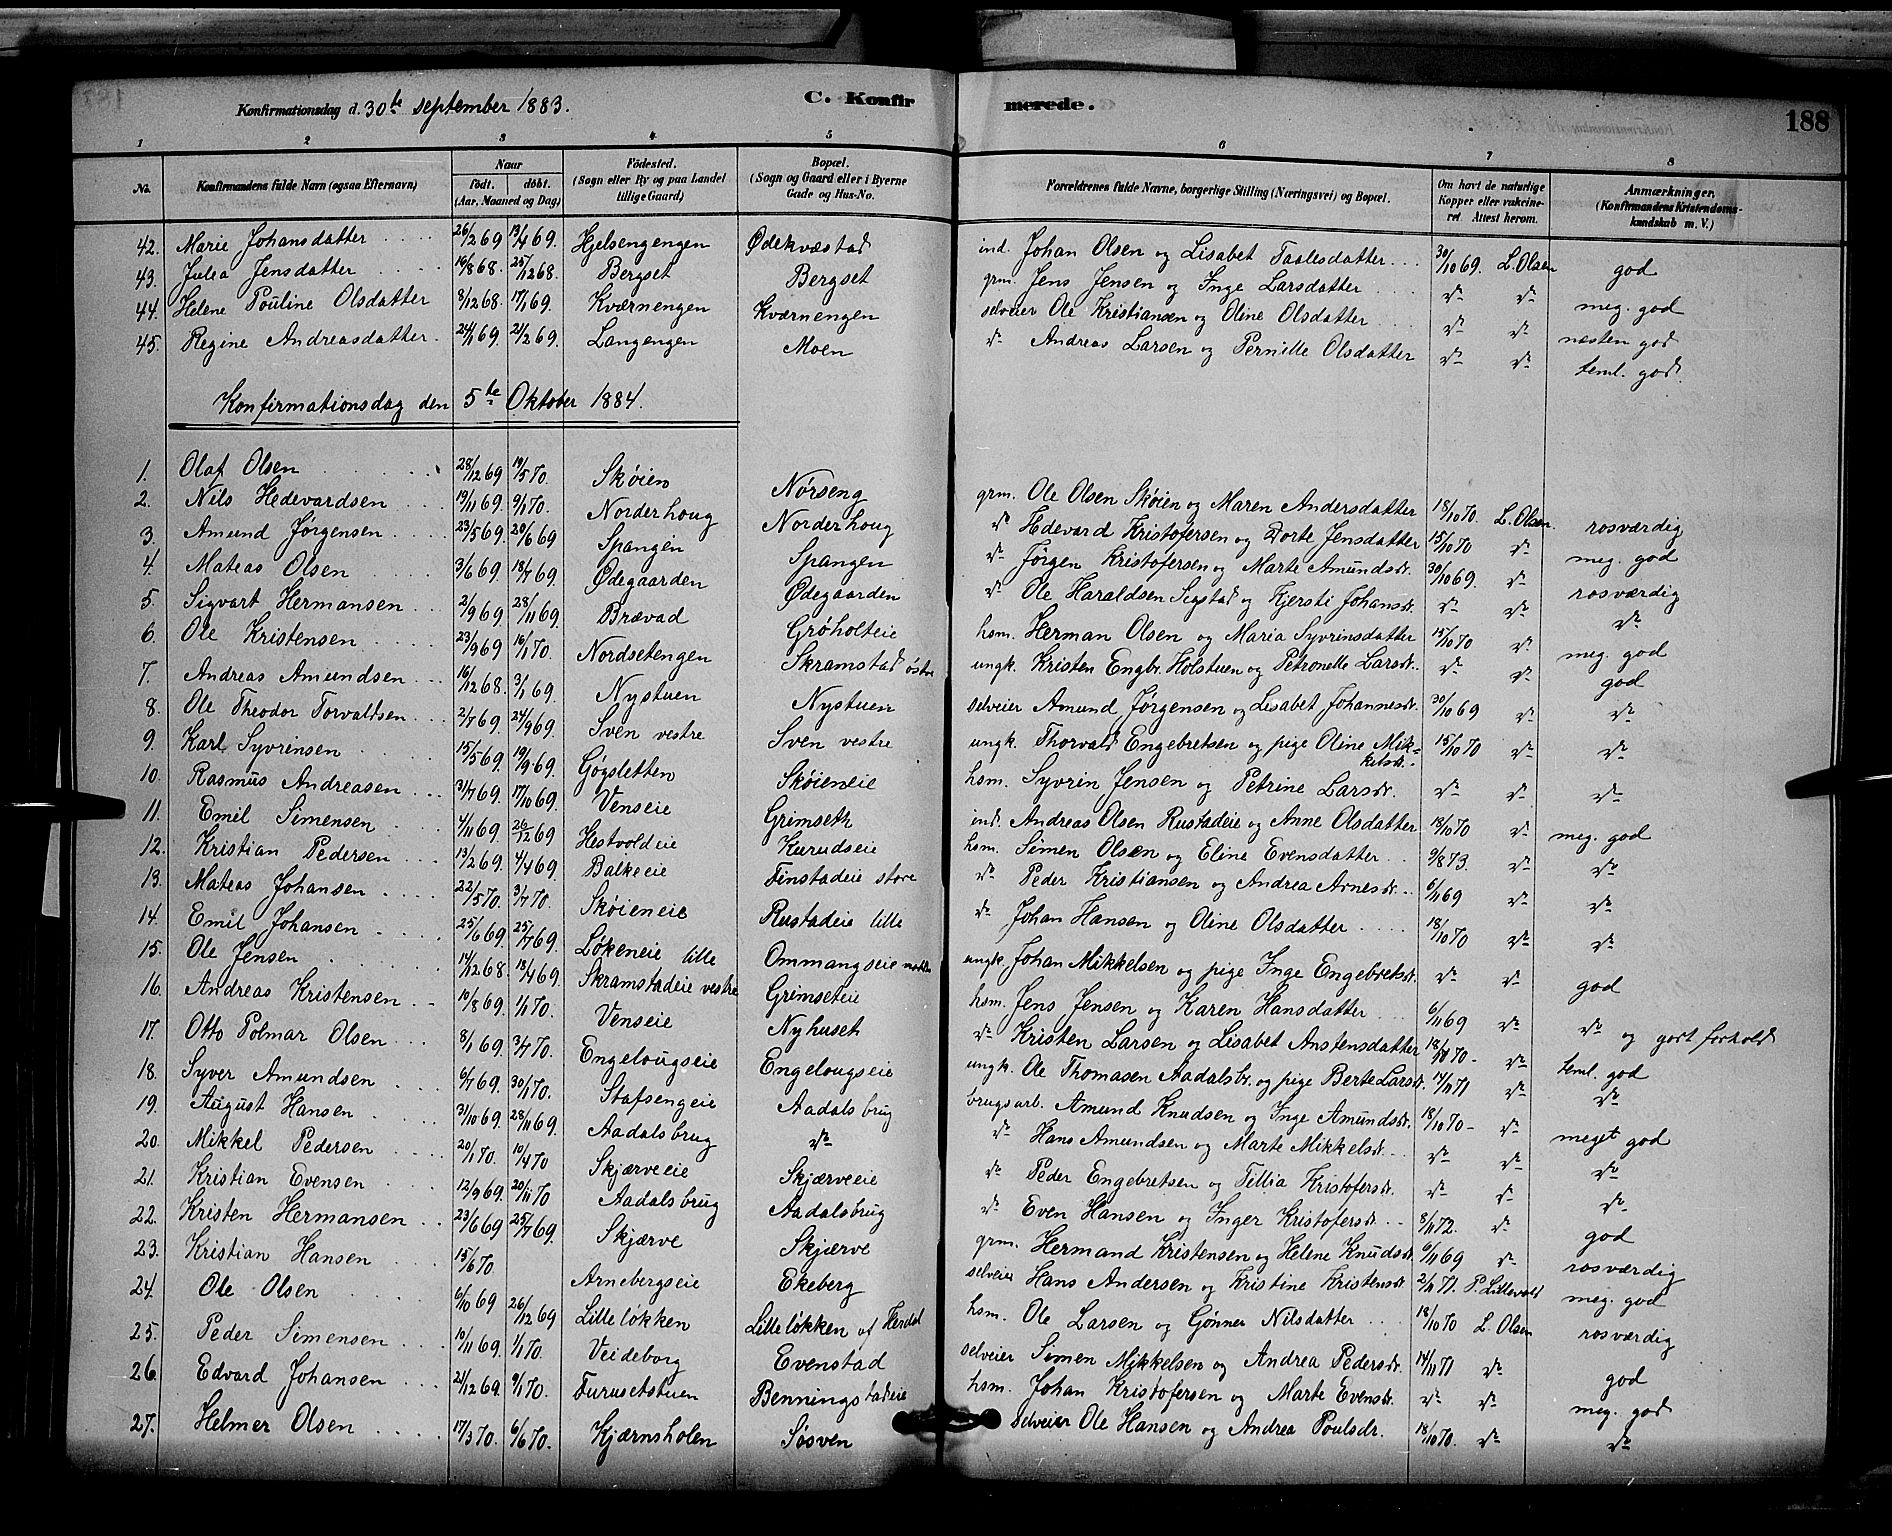 Konfirmationsdag d. 30te september 1883. C. Konfirmerede. 188
1 2 3 4 5 6 7 8
No. Konfirmandens fulde Navn (ogsaa Efternavn) Naar født. døbt. (Aar, Maaned og Dag) Fødested. (Sogn eller By og paa Landet tillige Gaard) Bopæl. (Sogn og Gaard eller i Byerne Gade og Hus-No. Forældrenes fulde Navne, borgerlige Stilling (Næringsvei) og Bopæl. Om havt de naturlige Kopper eller vakcineret. Attest herom. Anmærkninger, (Konfirmandens Kristendomskundskab m. V.)
42. Marie Johansdatter 26/2 69 19/4 69. Hjelsengengen Ødekvæstad ind. Johan Olsen og Lisabet Paalsdatter 30/10 69. L. Olsen god
43. Julea Jensdatter 19/8 68. 25/12 68. Bergset Bergset grm. Jens Jensen og Inge Larsdatter do do meg. god
44. Helene Pouline Olsdatter 8/12 68. 17/1 69. Kværnengen Kværnengen selveier Ole Kristiansen og Oline Olsdatter do do næsten god
45. Regine Andreasdatter 24/1 69. 21/2 69. Langengen Moen do Andreas Larsen og Pernille Olsdatter do do teml. god.
Konfirmationsdag den 5te Oktober 1884.
1. Olaf Olsen 28/12 69 19/5 70. Skøien Nørseng grm. Ole Olsen Skøien og Maren Andersdatter 18/10 70. L. Olsen. rosværdig
2. Nils Hedevardsen 19/11 69. 9/1 70. Norderhoug Norderhoug do Hedevard Kristofersen og Dorte Jensdatter 15/10 70 do meg. god
3. Amund Jørgensen 23/5 69. 20/6 69 Spangen Spangen do Jørgen Kristofersen og Marte Amundsdr. 30/10 69. do rosværdig
4. Mateas Olsen 3/6 69. 18/7 69. Ødegaarden Ødegaarden do Ole Haraldsen Segstad og Kjersti Johansdr. do do do
5. Sigvart Hermansen 2/9 69. 28/11 69. Brævad Grøholteie hsm. Herman Olsen og Maria Syvrinsdatter 15/10 70 do meg. god
6. Ole Kristensen 23/9 69 16/1 70. Nordsetengen Skramstad østre ungk. Kristen Engbr. Holstuen og Petronelle Larsdr. do do god
7. Andreas Amundsen 16/12 68. 3/1 69. Nystuen Nystuen selveier Amund Jørgensen og Lisabet Johannesdr. 30/10 69 do do
8. Ole Theodor Torvaldsen 2/7 69. 24/9 69. Sven vestre Sven vestre ungk. Thorvald Engebretsen og pige Oline Mikkelsdr. 15/10 70 do do
9. Karl Syvrinsen 15/5 69. 19/9 69. Gøgsletten Skøieneie hsm. Syvrin Jensen og Petrine Larsdr. do do do
10. Rasmus Andreasen 31/7 69. 17/10 69. Venseie Grimseth ind. Andreas Olsen Rustadeie og Anne Olsdatter 18/10 70 do meg. god
11. Emil Simensen 4/11 69. 26/12 69 Hestvoldeie Kurudseie hsm. Simen Olsen og Eline Evensdatter 9/8 73. do do
12. Kristian Pedersen 13/2 69. 4/4 69. Balkeeie Finstadeie store do Peder Kristiansen og Andrea Arnesdr. 6/11 69 do do
13. Mateas Johansen 22/5 70. 3/7 70. Skøieneie Rustadeie lille do Johan Hansen og Oline Olsdatter 18/10 70 do do
14. Emil Johansen 25/6 69. 25/7 69. Løkeneie lille Ommangseie ungk. Johan Mikkelsen og pige Inge Engebretsdr. do do god
15. Ole Jensen 14/12 68. 18/4 69. Skramstadeie vestre Grimseteie hsm. Jens Jensen og Karen Hansdatter 6/11 69 do do og godt forhold
16. Andreas Kristensen 10/8 69. 1/1 70. Venseie Nyhuset do Kristen Larsen og Lisabet Anstensdatter 18/10 70 do teml. god
17. Otto Polmar Olsen 8/1 69. 3/7 70. Engelougseie Engelougseie ungk. Ole Thomasen Aadalsbr. og pige Berte Larsdr. 14/11 71 do do
18. Syver Amundsen 6/7 69. 30/1 70. Stafsengeie Aadalsbrug brugsarb. Amund Knudsen og Inge Amundsdr. 18/10 70 do meget god
19. August Hansen 31/10 69. 28/11 69. Aadalsbrug do do Hans Amundsen og Marte Mikkelsdr. do do do
20. Mikkel Pedersen 20/1 70. 10/4 70 Skjærveeie Skjærveeie do Peder Engebretsen og Tillia Kristofersdr. do do do
21. Kristian Evensen 12/9 69. 20/11 70 Aadalsbrug Aadalsbrug do Even Hansen og Inger Kristofersdr. 8/11 72. do god
22. Kristen Hermansen 23/6 69 25/7 69. Skjærve Skjærve grm. Hermand Kristensen og Helene Knudsdr. 6/11 69 do rosværdig
23. Kristian Hansen 15/6 70. Arnebergseie Ekeberg selveier Hans Andersen og Kristine Kristensdr. 2/11 71. P. Lillevold meg. god
24. Ole Olsen 6/10 69 26/12 69 Lilleløkken Lilleløkken af Herdal hsm. Ole Larsen og Gønner Nilsdatter 18/10 70 L. Olsen rosværdig
25. Peder Simensen 10/11 69. 1/1 70. Veideborg Evenstad selveier Simen Mikkelsen og Andrea Pedersdr. 14/11 71 do god
26. Edvard Johansen 21/12 69. 9/1 70. Furusetstuen Benningstadeie hsm. Johan Kristofersen og Marte Evensdr. do do meg. god
27. Helmer Olsen 17/3 70. 6/6 70. Kjærnsholen Søsven selveier Ole Hansen og Andrea Poulsdr. 18/10 70. do do